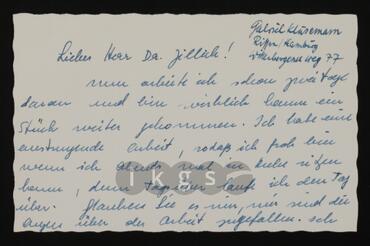 Gabriel Klusemann
Hamburg
Weg 77
Lieber Herr Dr. Zillich!
nun arbeite ich schon zwei Tage
daran und bin wirklich kaum ein
Stück weiter gekommen. Ich habe eine
anstrengende Arbeit, sodaß ich froh bin
wenn ich abends mal in Ruhe sitzen
kann, denn tagsüber laufe ich den Tag
über. Glauben Sie es mir, mir sind die
Augen über der Arbeit zugefallen. Ich
ikgs